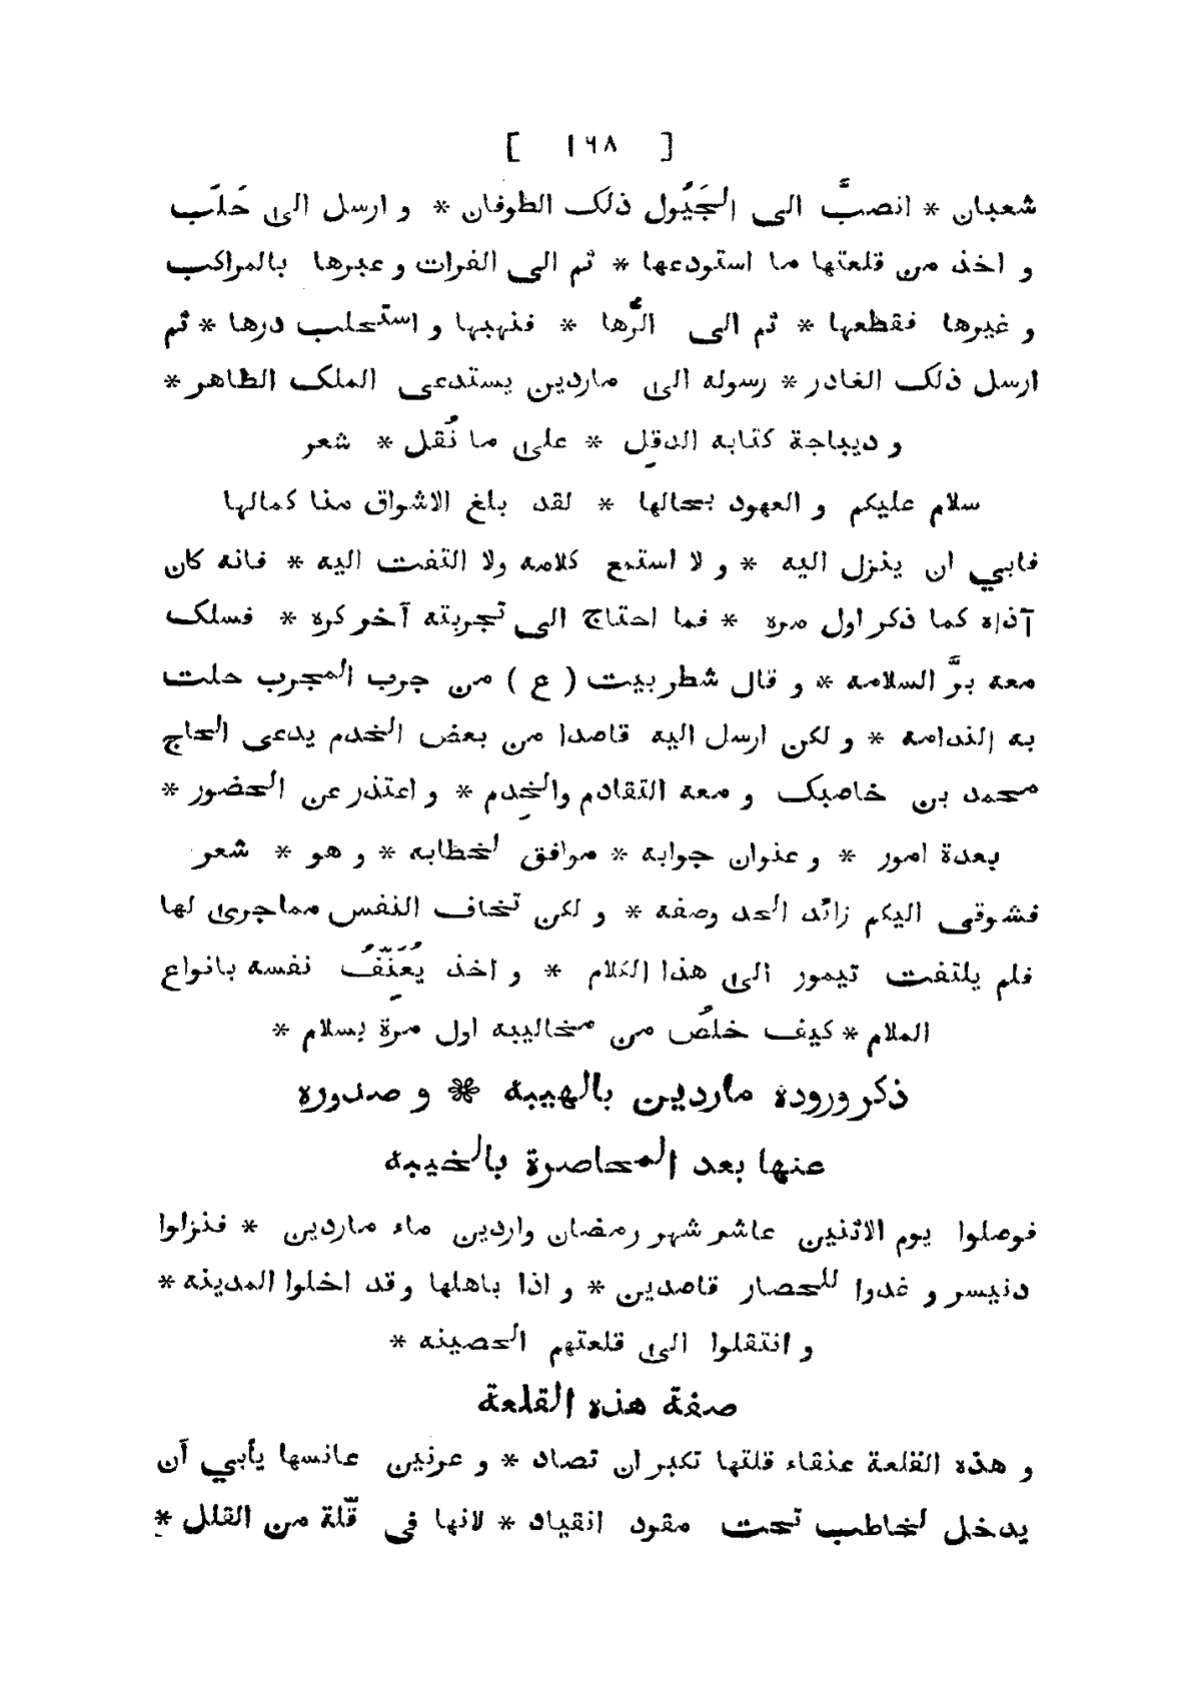 [ ١٦٨ ]
شعبان * انصبَّ الى الجَيُول ذلك الطوفان * و ارسل الى حَلَب
و اخذ من قلعتها ما استودعها * ثم الى الفرات و عبرها بالمراكب
و غيرها فقطعها * ثم الى الرُّها * فنهبها و استحلب درها * ثم
ارسل ذلك الغادر * رسوله الى ماردين يستدعى الملك الظاهر *
و ديباجة كتابه الدقِل * على ما نُقل * شعر
سلام عليكم و العهود بحالها * لقد بلغ الاشواق منا كمالها
فابي ان ينزل اليه * و لا استمع كلامه ولا التفت اليه * فانه كان
آذاه كما ذكر اول مره * فما احتاج الى تجربته آخر كره * فسلك
معه برَّ السلامه * و قال شطر بيت ( ع ) من جرب المجرب حلت
به الندامه * و لكن ارسل اليه قاصدا من بعض الخدم يدعى الحاج
محمد بن خاصبك و معه التقادم والخِدم * و اعتذر عن الحضور *
بعدة امور * و عنوان جوابه * موافق لخطابه * و هو * شعر
فشوقى اليكم زائد الحد وصفه * و لكن تخاف النفس مماجرى لها
فلم يلتفت تيمور الى هذا الكلام * و اخذ يُعَنِّفُ نفسه بانواع
الملام * كيف خلصُ من مخاليبه اول مرة بسلام *
ذكر وروده ماردين بالهيبه * و صدوره
عنها بعد المحاصرة بالخيبه
فوصلوا يوم الاثنين عاشر شهر رمضان واردين ماء ماردين * فنزلوا
دنيسر و غدوا للحصار قاصدين * و اذا باهلها وقد اخلوا المدينه *
و انتقلوا الى قلعتهم الحصينه *
صفة هذه القلعة
و هذه القلعة عنقاء قلتها تكبر ان تصاد * و عرنين عانسها يأبي أن
يدخل لخاطب تحت مقود انقياد * لانها فى قّلة من القلل *